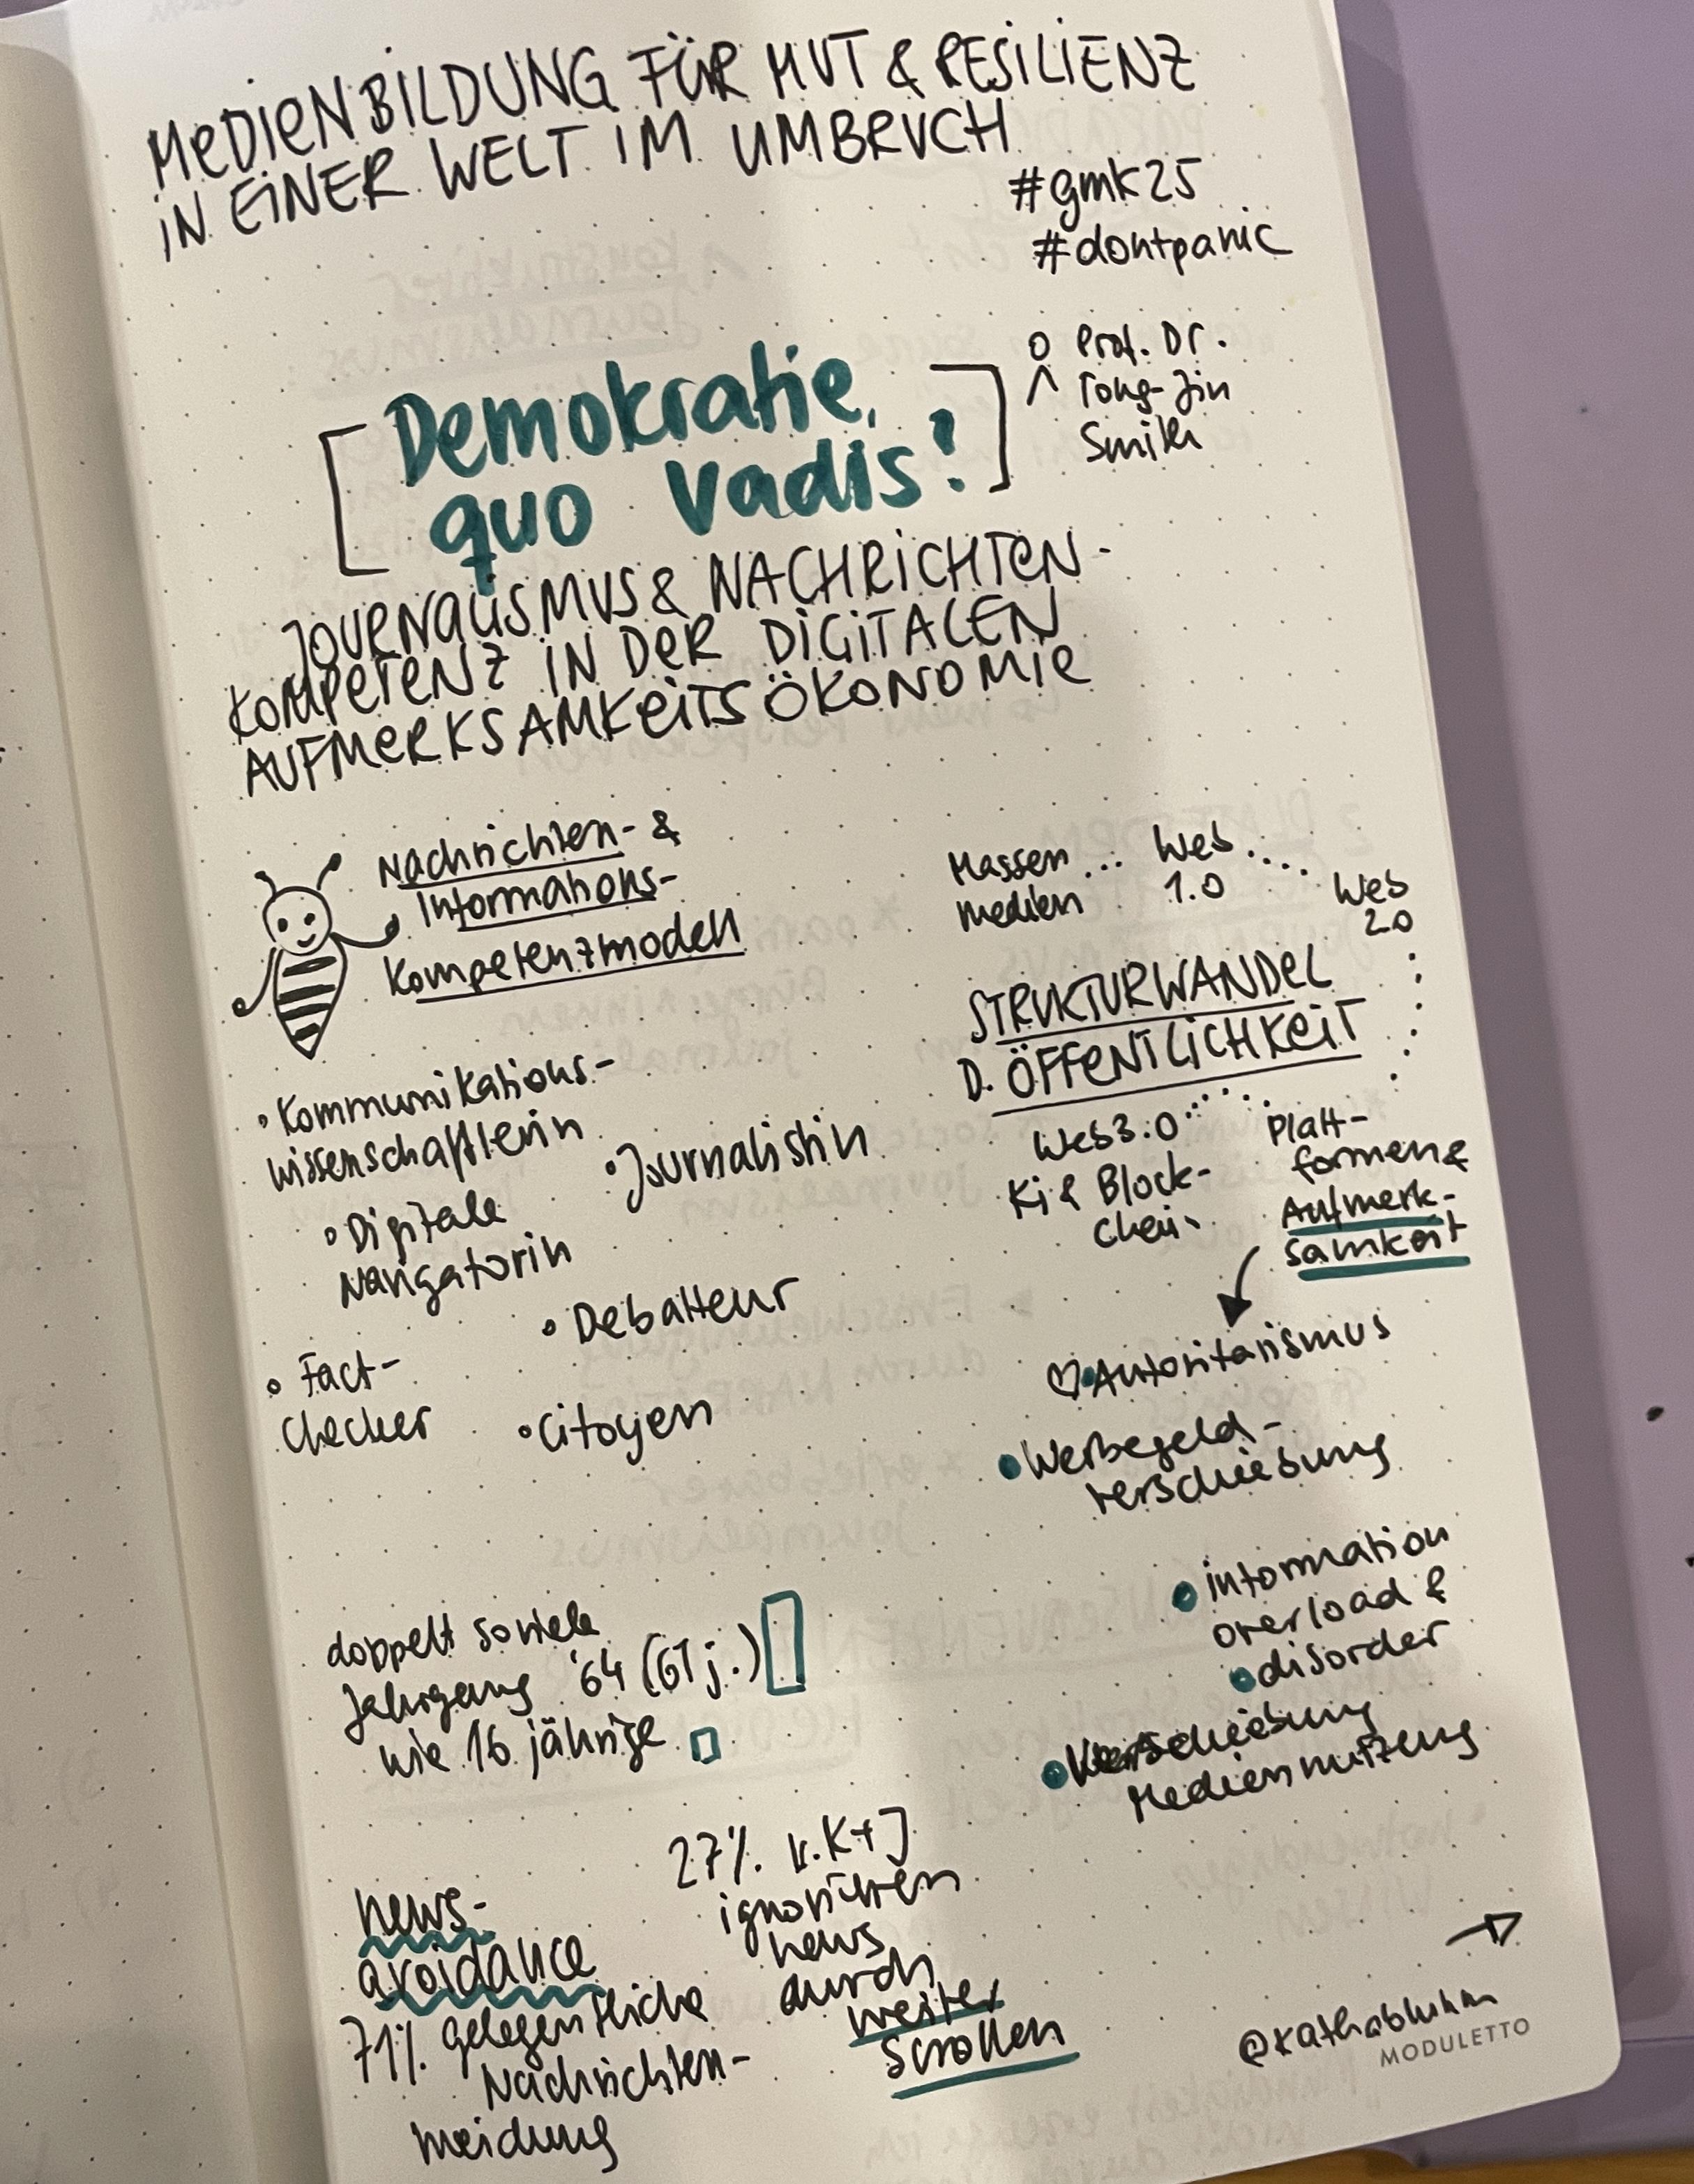 MEDIENBILDUNG FÜR MUT & RESILIENZ
IN EINER WELT IM UMBRUCH
#gmk25
#dontpanic
Prof. Dr.
Yong-Jin
Smilh
[Demokratie,
quo vadis?]
JOURNALISMUS & NACHRICHTEN-
KOMPETENZ IN DER DIGITALEN
AUFMERKSAMKEITSÖKONOMIE
Nachrichten- &
Informations-
Kompetenzmodell
• Kommunikations-
wissenschaftlerin
• Journalistin
• Digitale
Navigatorin
• Debatteur
• Fact-
Checker
• Citoyen
Massen
medien
... Web ....
1.0
Web
2.0
STRUKTURWANDEL
D. ÖFFENTLICHKEIT
Web 3.0
Ki & Block-
chain
Platt-
formen &
Aufmerk-
samkeit
♡ • Autoritarismus
• Werbegeld-
verschiebung
• information
overload &
• disorder
• Verschiebung
Mediennutzung
doppelt soviele
Jahrgang '64 (61 j.)
wie 16 jährige
news-
avoidance
71% gelegentliche
Nachrichten-
meidung
27% v. K+J
ignorieren
news
durch
weiter
scrollen
→
@kathabluhm
MODULETTO